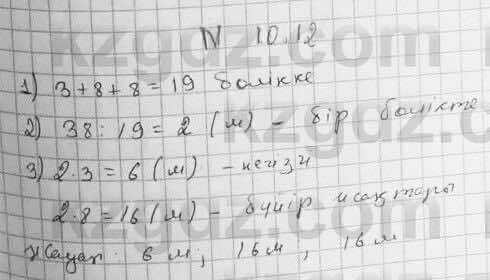 N 10.12
1) 3+8+8=19 бөлікке
2) 38:19=2 (м) – бір бөлікте
3) 2·3=6 (м) – негізі
2·8=16 (м) – бүйір жақтары
Жауап: 6 м; 16 м; 16 м
kzgdz.com